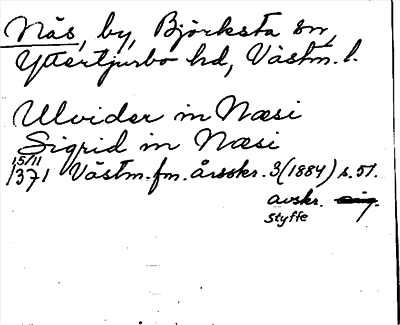 Näs, by, Björksta sn,
Yttertjurbo hd, Västm. l.
Ulvider in Næsi
Sigrid in Næsi
15/11
1371 Västm. fm. årsskr. 3 (1884) s. 51.
avskr.
Styffe